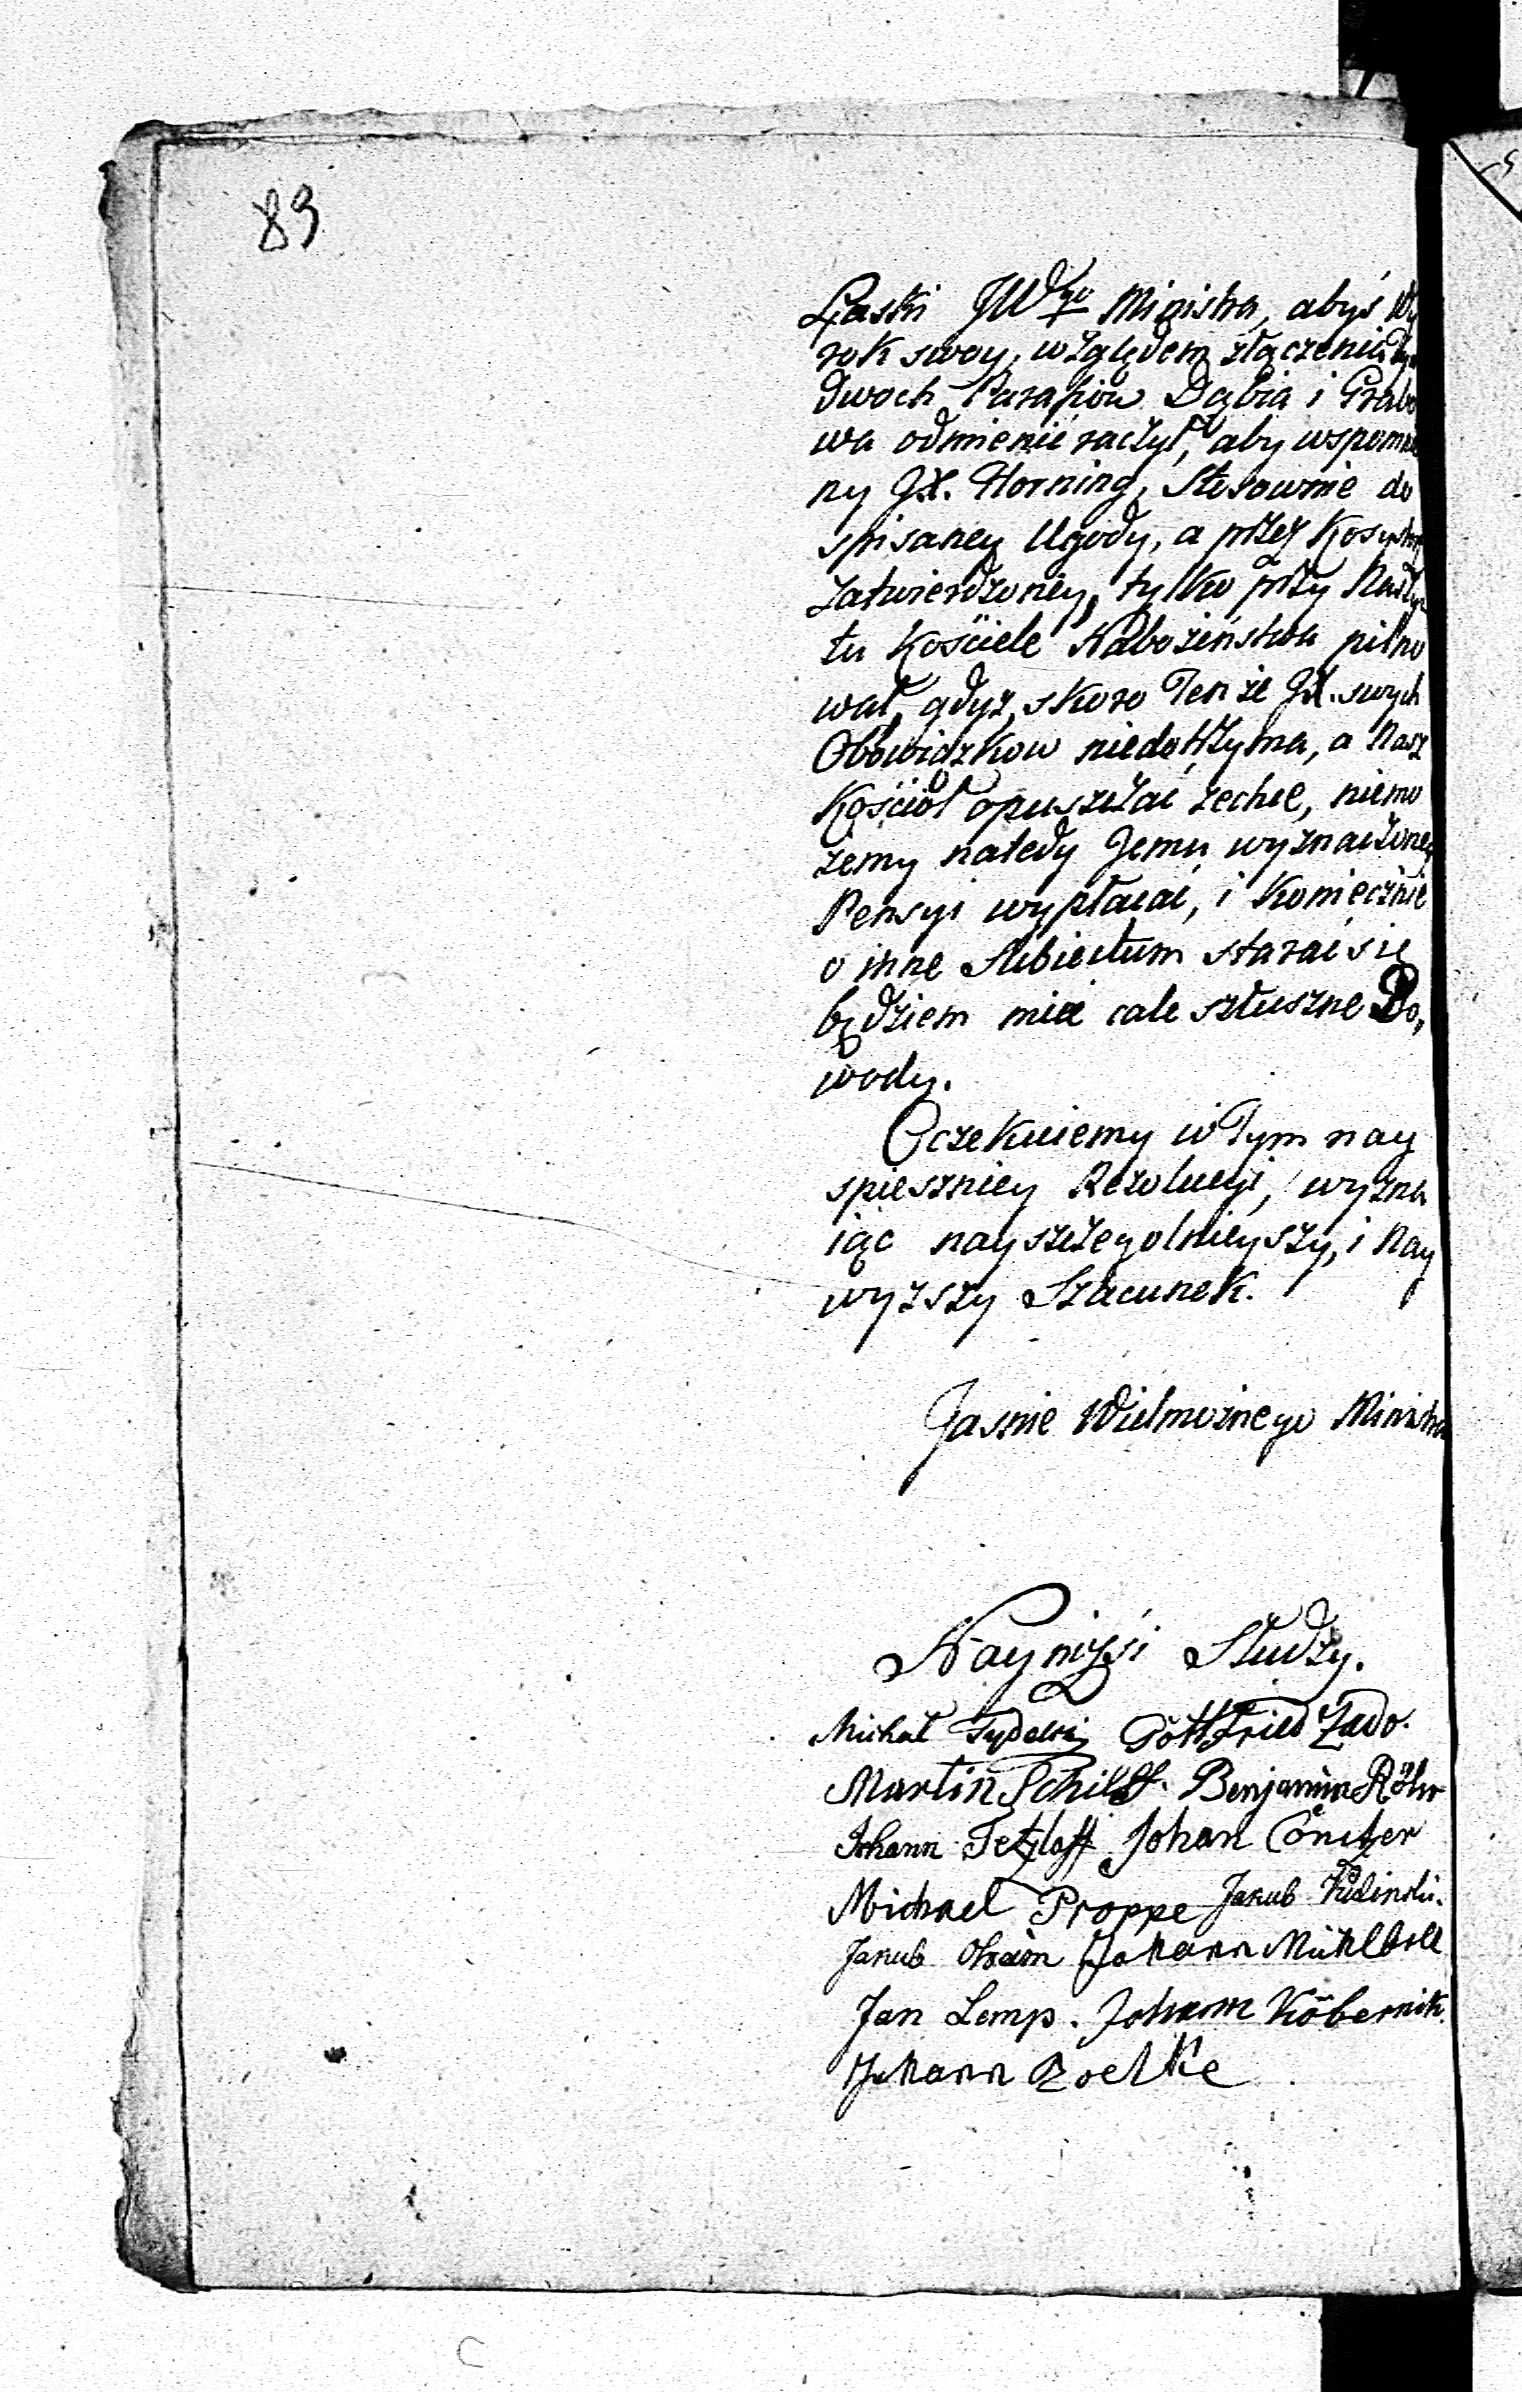 89
Łaski JWgo Ministra, abyś Wy
rok swoy, względem złączenia
dwoch Parafiow Dąbia i Grabo
wa odmienić raczył, aby wspomnio
ny JX. Horning, Stosownie do
spisaney Ugody, a przez
zatwierdzoney, tylko przy
tu Kościele Nabożeństwa pilno
wał, gdyż, skoro Tenże JX. swych
Obowiązkow niedotrzyma, a Nasz
Kościoł opuszczać zechce, niemo
żemy natedy Jemu wyznaczoney
Pensyi wypłacać, i Koniecznie
o inne Subiectum starać się
będziem mieć cale szłuszne Do,
wody.
Oczekuiemy w Tym nay
spieszniey Rezolucyi, wyzna
iąc nayszczegolnieyszy, i Nay
wyższy Szacunek.
Jaśnie Wielmożnego Ministra
Nayniżsi Słudzy.
Michał Gottfried Zado.
Martin Benjamin Röhr
Johann Tetzlaff Johan Cönitzer
Michael Proppe Jakub
Jakub Johann
Jan Lemp. Johann Köbernik.
Johann Zoelke